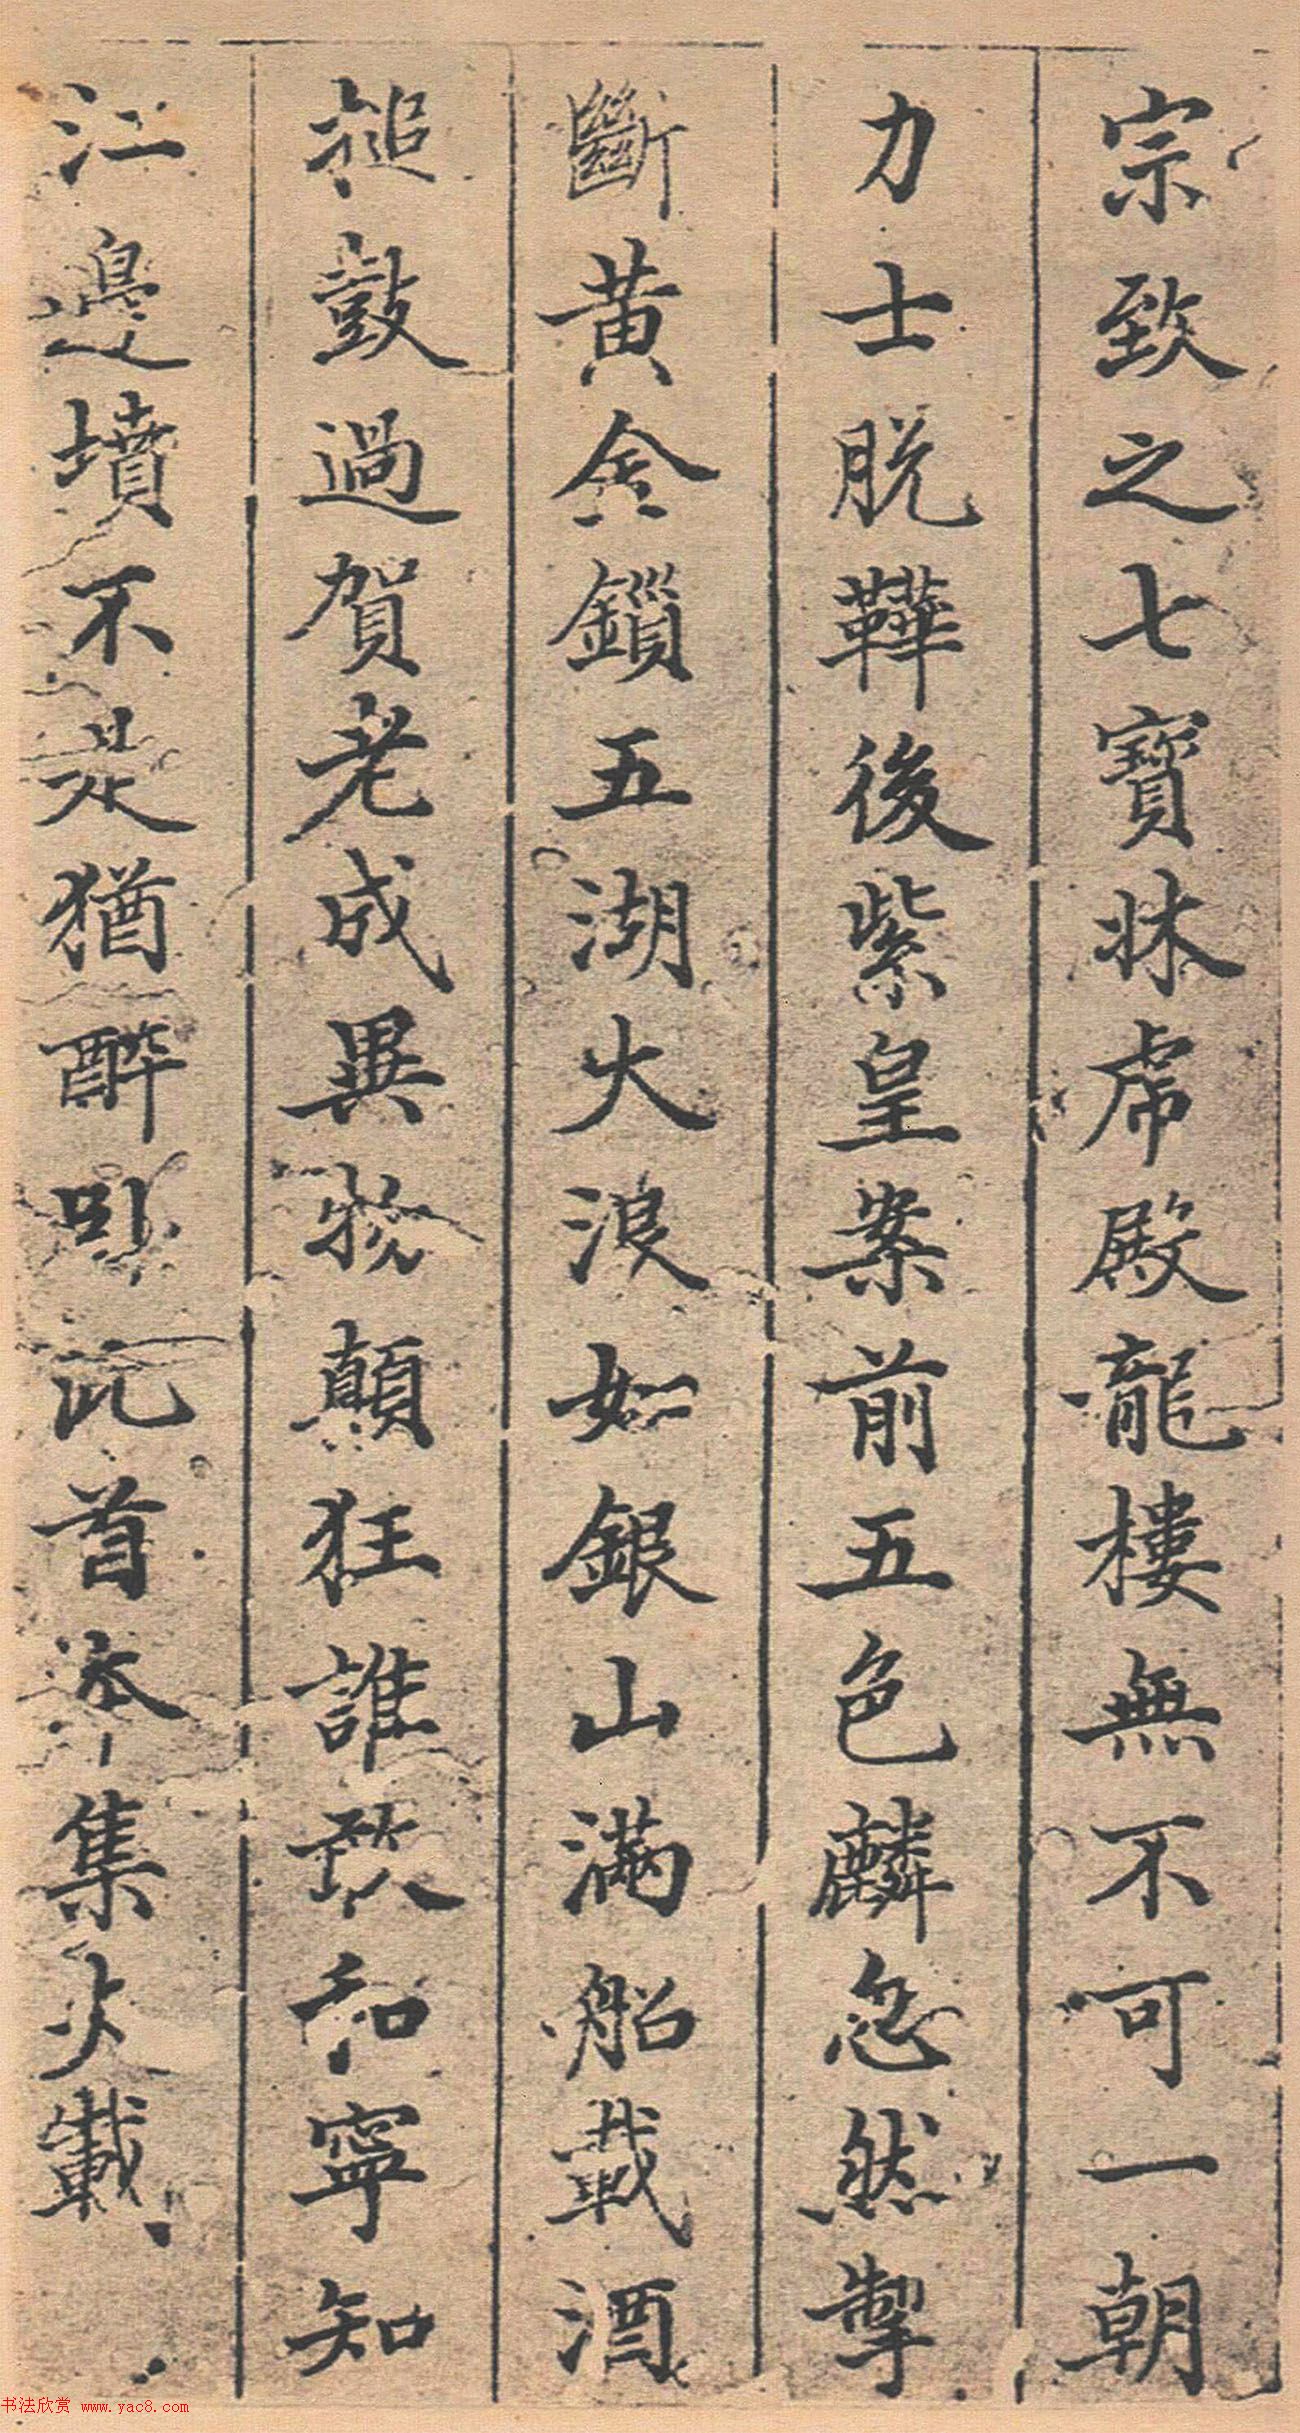 宗致之七寶牀虎殿龍樓無不可一朝
力士脫鞾後紫皇案前五色麟忽然掣
斷黃金鎖五湖大浪如銀山滿船載酒
搥鼓過賀老成異物顛狂誰敢和寧知
江邊墳不是猶醉卧此首本集載
书法欣赏 www.yac8.com